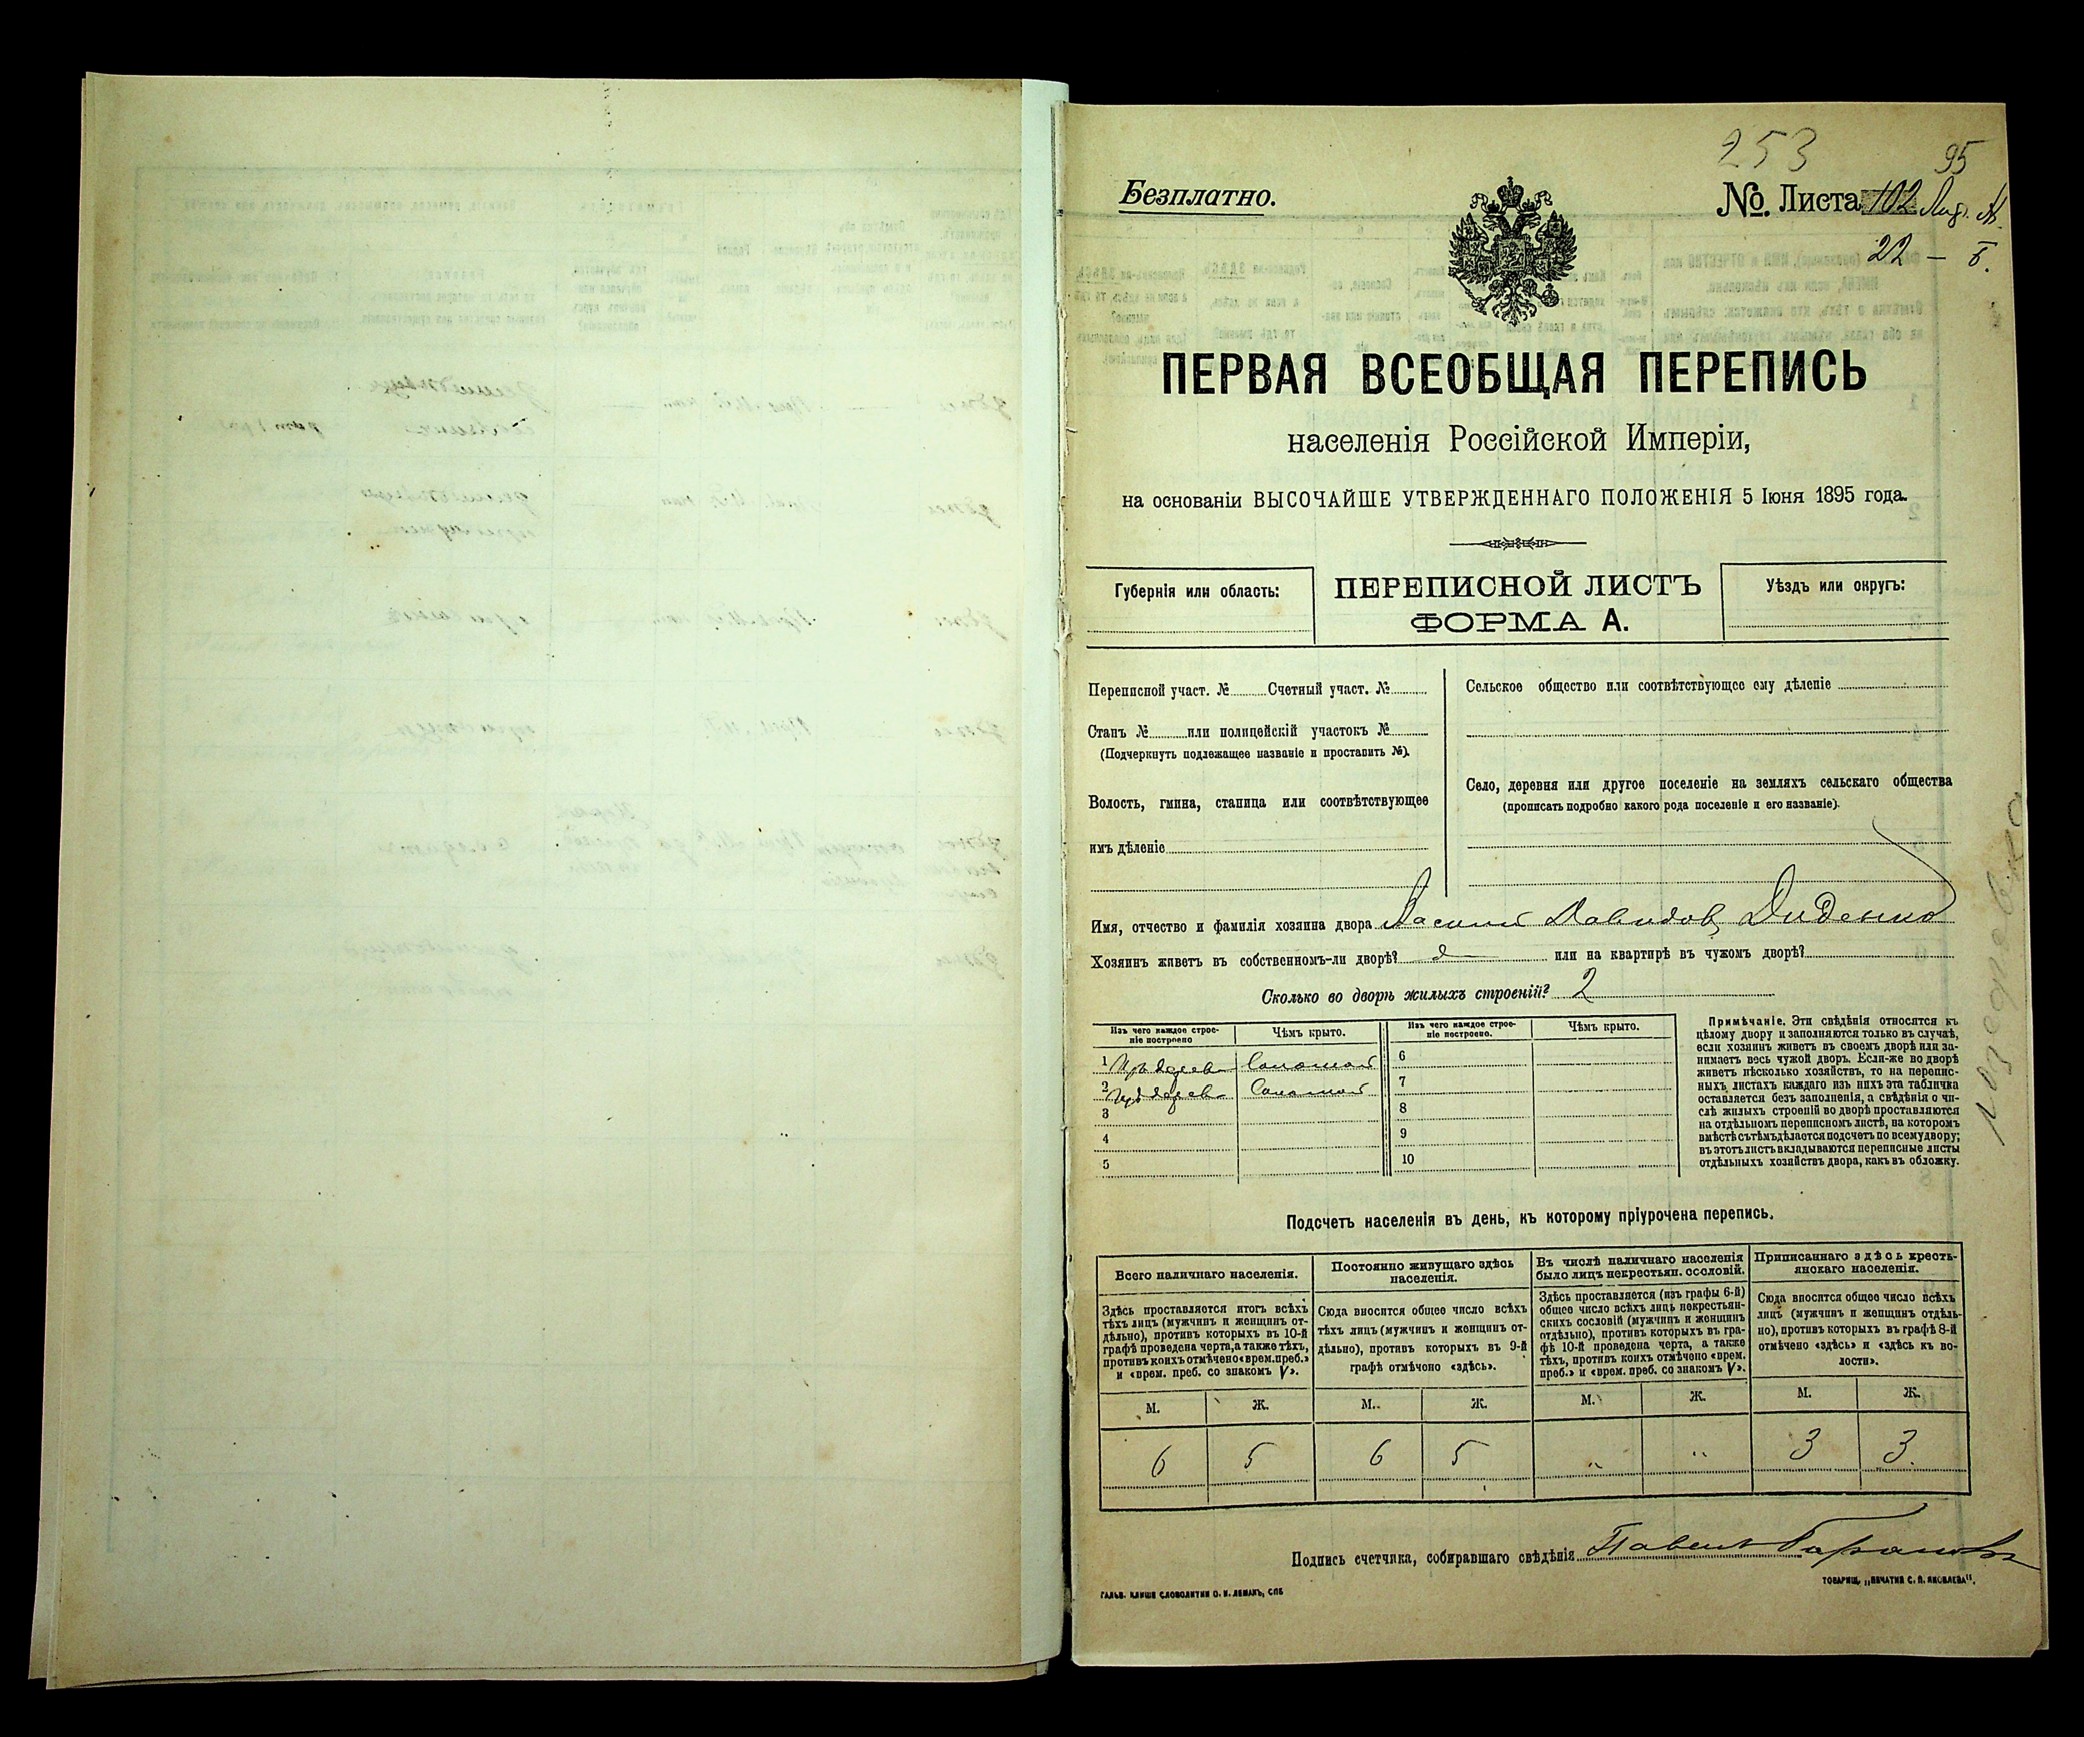 253
95
Безплатно.
№. Листа 102
22 — Б.
ПЕРВАЯ ВСЕОБЩАЯ ПЕРЕПИСЬ
населенія Россійской Имперіи,
на основаніи ВЫСОЧАЙШЕ УТВЕРЖДЕННАГО ПОЛОЖЕНІЯ 5 Іюня 1895 года.
Губернія или область:
ПЕРЕПИСНОЙ ЛИСТЪ
ФОРМА А.
Уѣздъ или округъ:
Переписной участ. № Счетный участ. №
Станъ № или полицейскій участокъ №
(Подчеркнуть подлежащее названіе и проставить №).
Волость, гмина, станица или соотвѣтствующее
имъ дѣленіе
Сельское общество или соотвѣтствующее ему дѣленіе
Село, деревня или другое поселеніе на земляхъ сельскаго общества
(прописать подробно какого рода поселеніе и его названіе).
Имя, отчество и фамилія хозяина двора Василий Давидовъ Диденко
Хозяинъ живетъ въ собственномъ-ли дворѣ? или на квартирѣ въ чужомъ дворѣ?
Сколько во дворѣ жилыхъ строеній? 2
Изъ чего каждое строе-
ніе построено
Чѣмъ крыто.
Изъ чего каждое строе-
ніе построено.
Чѣмъ крыто.
1 Изъ дерева Соломой 6
2 Изъ дерева Соломой 7
3 8
4 9
5 10
Примѣчаніе. Эти свѣдѣнія относятся къ
цѣлому двору и заполняются только въ случаѣ,
если хозяинъ живетъ въ своемъ дворѣ или за-
нимаетъ весь чужой дворъ. Если-же во дворѣ
живетъ нѣсколько хозяйствъ, то на перепис-
ныхъ листахъ каждаго изъ нихъ эта табличка
оставляется безъ заполненія, а свѣдѣнія о чи-
слѣ жилыхъ строеній во дворѣ проставляются
на отдѣльномъ переписномъ листѣ, на которомъ
вмѣстѣ съ тѣмъ дѣлается подсчетъ по всему двору;
въ этотъ листъ вкладываются переписные листы
отдѣльныхъ хозяйствъ двора, какъ въ обложку.
Подсчетъ населенія въ день, къ которому пріурочена перепись.
Всего наличнаго населенія.
Здѣсь проставляется итогъ всѣхъ
тѣхъ лицъ (мужчинъ и женщинъ от-
дѣльно), противъ которыхъ въ 10-й
графѣ проведена черта, а также тѣхъ,
противъ коихъ отмѣчено «врем. преб.»
и «врем. преб. со знакомъ V».
Постоянно живущаго здѣсь
населенія.
Сюда вносится общее число всѣхъ
тѣхъ лицъ (мужчинъ и женщинъ от-
дѣльно), противъ которыхъ въ 9-й
графѣ отмѣчено «здѣсь».
Въ числѣ наличнаго населенія
было лицъ некрестьян. сословій.
Здѣсь проставляется (изъ графы 6-й)
общее число всѣхъ лицъ некрестьян-
скихъ сословій (мужчинъ и женщинъ
отдѣльно), противъ которыхъ въ гра-
фѣ 10-й проведена черта, а также
тѣхъ, противъ коихъ отмѣчено «врем.
преб.» и «врем. преб. со знакомъ V».
Приписаннаго здѣсь кресть-
янскаго населенія.
Сюда вносится общее число всѣхъ
лицъ (мужчинъ и женщинъ отдѣль-
но), противъ которыхъ въ графѣ 8-й
отмѣчено «здѣсь» и «здѣсь къ во-
лости».
М. Ж. М. Ж. М. Ж. М. Ж.
6 5 6 5 „ „ 3 3.
Подпись счетчика, собиравшаго свѣдѣнія Павелъ
ГАЛЬВ. КЛИШЕ СЛОВОЛИТНИ О. И. ЛЕМАНЪ, СПБ
ТОВАРИЩ. „ПЕЧАТНЯ С. П. ЯКОВЛЕВА".